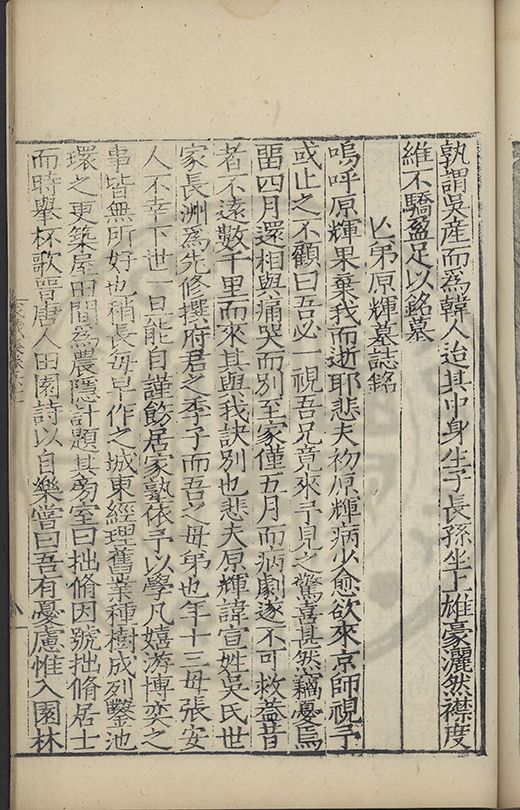 孰謂吳産而爲韓人迨其中身生子長孫坐上雄豪灑然襟度
維不驕盈足以銘墓
亡弟原輝墓誌銘
嗚呼原輝果棄我而逝耶悲夫初原輝病少愈欲來京師視予
或止之不顧曰吾必一視吾兄竟來予見之驚喜其然竊憂焉
畱四月還相與痛哭而別至家僅五月而病劇遂不可救蓋昔
者不遠數千里而來其與我訣別也悲夫原輝諱宣姓吳氏世
家長洲爲先修撰府君之季子而吾之母弟也年十三母張安
人不幸下世一旦能自謹飭居家塾依予以學凡嬉游博奕之
事皆無所好也稍長每早作之城東經理舊業種樹成列鑿池
環之更築屋田間爲農隱計題其旁室曰拙脩因號拙脩居士
而時舉杯歌晉唐人田園詩以自樂嘗曰吾有憂慮惟入園林